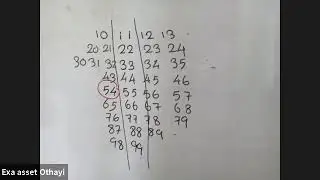 10 11 12 13
20 21 22 23 24
30 31 32 33 34 35
43 44 45 46
54 55 56 57
65 66 67 68
76 77 78 79
87 88 89
98 99
Exa asset Othayi